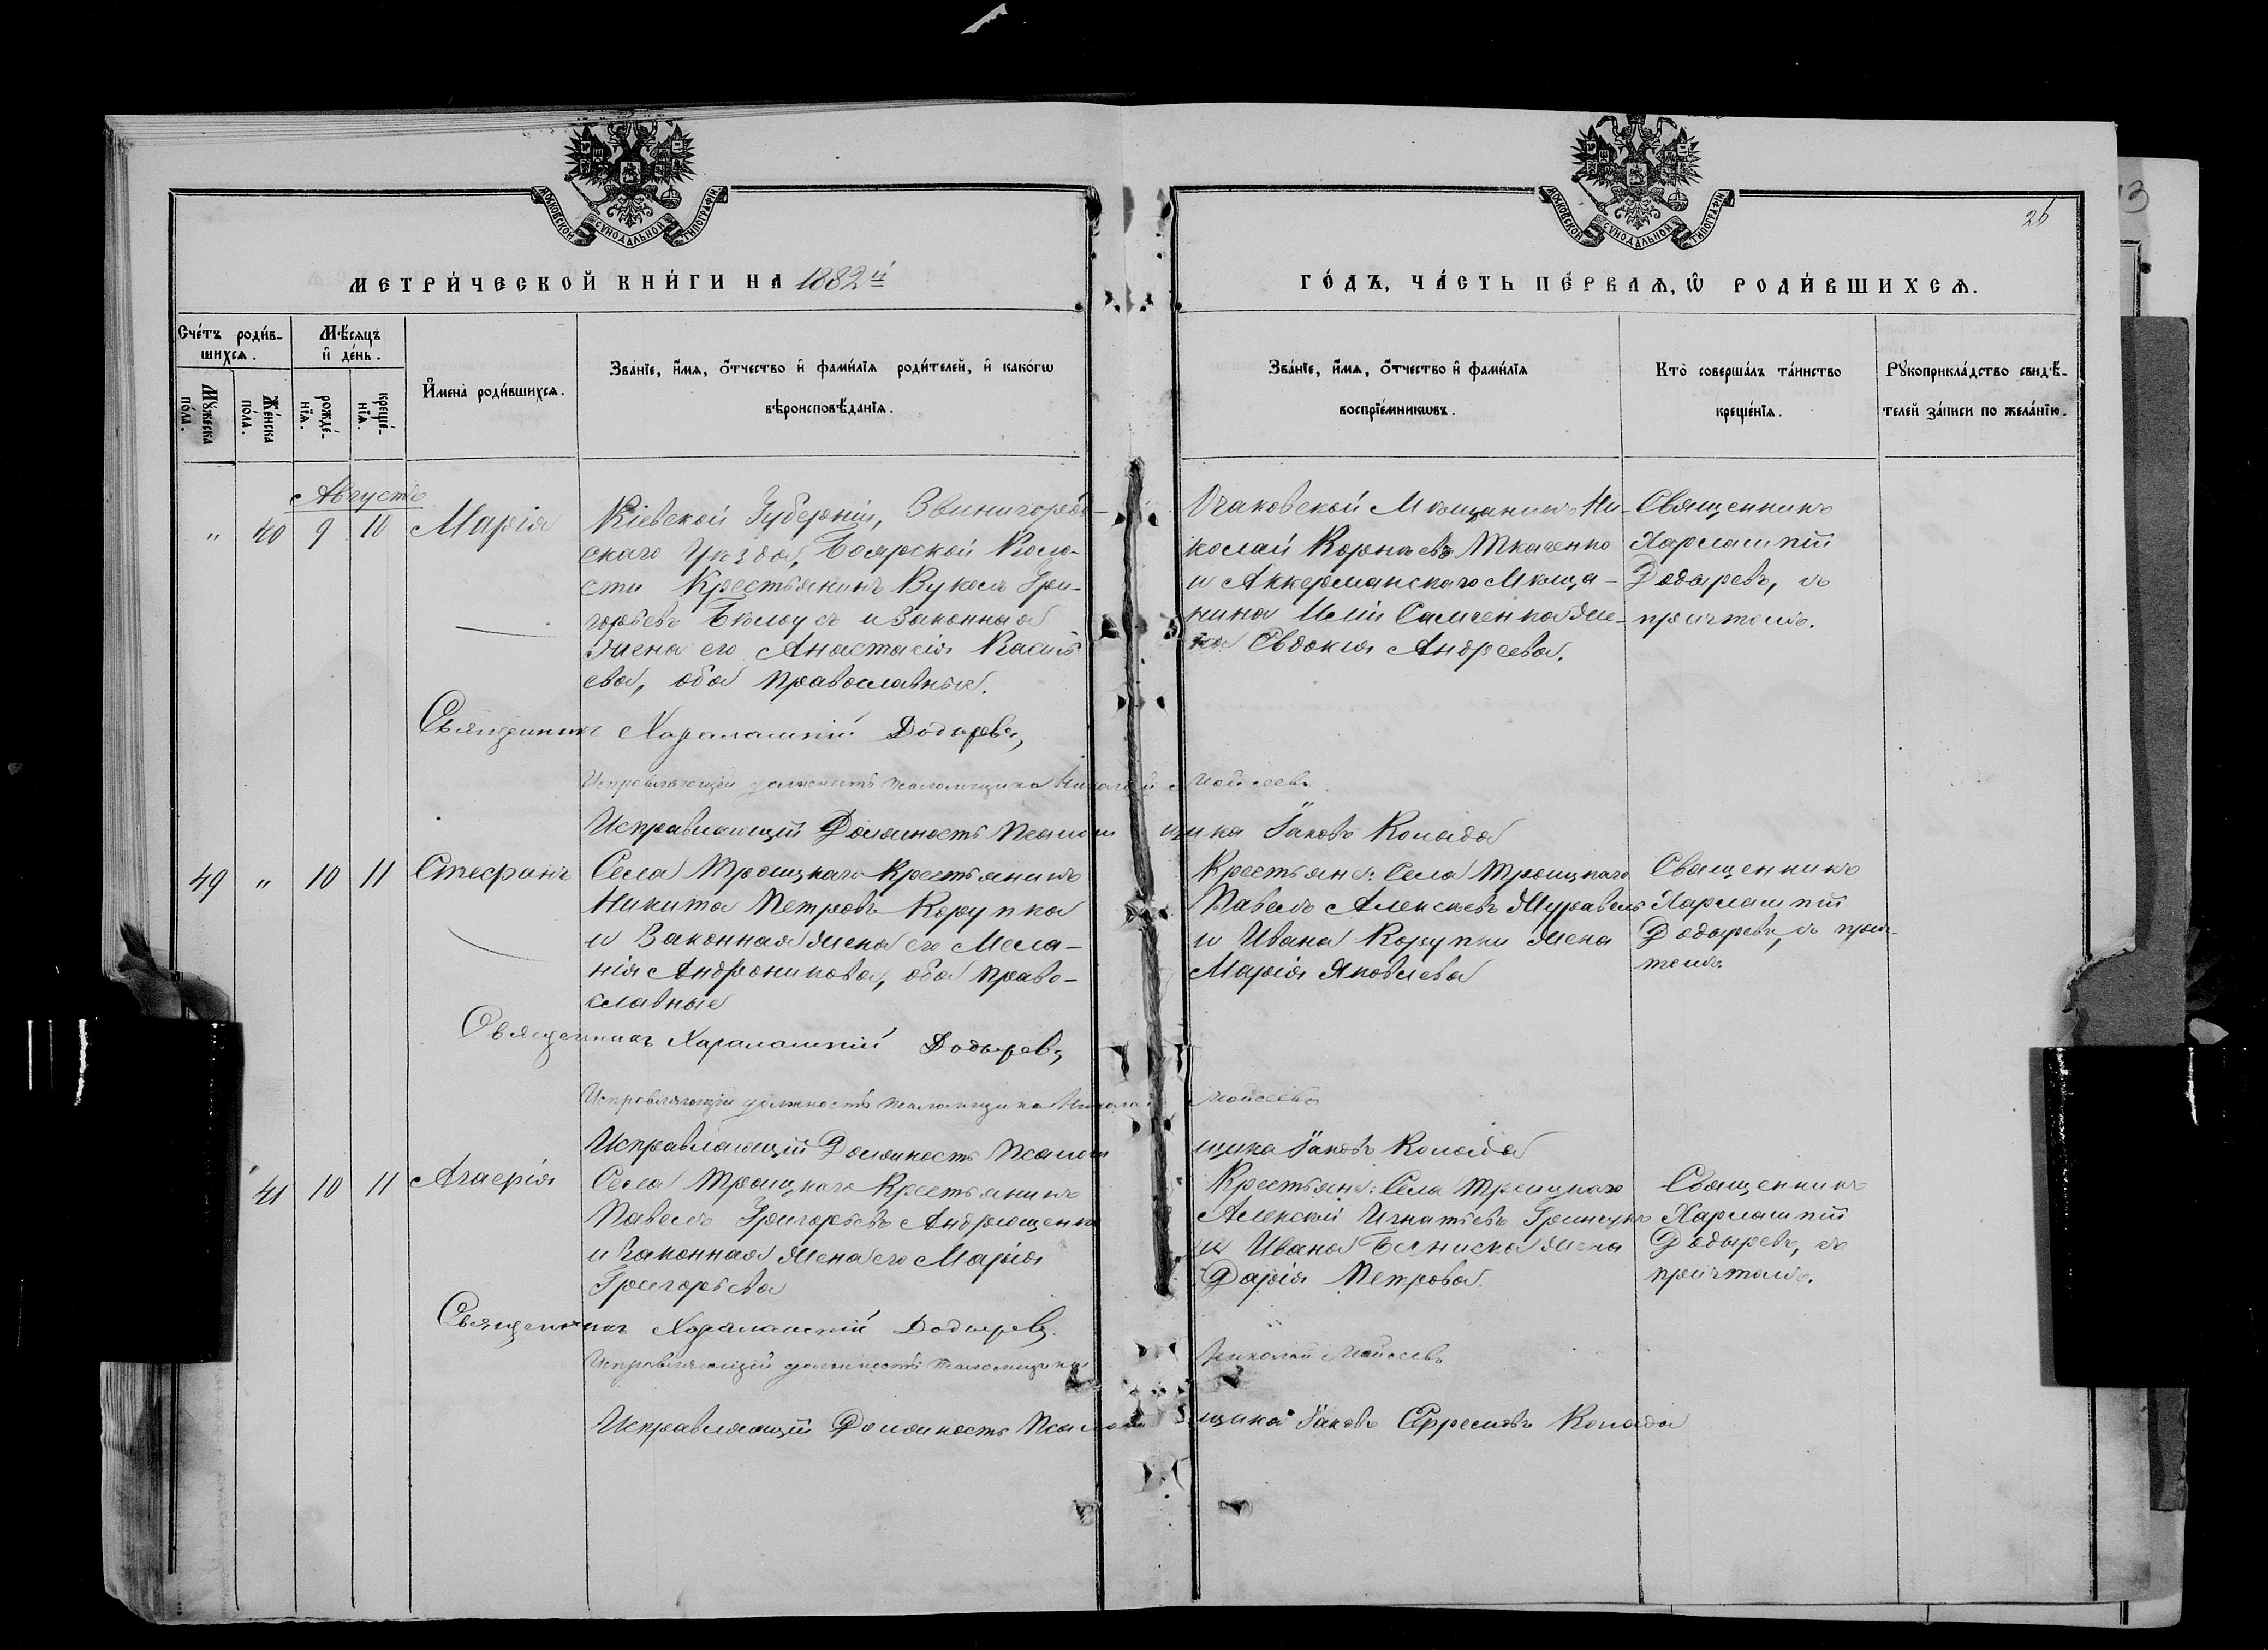 26
МОСКОВСКОЙ СѴНОДАЛЬНОЙ ТИПОГРАФІИ
МОСКОВСКОЙ СѴНОДАЛЬНОЙ ТИПОГРАФІИ
МЕТРИ́ЧЕСКОЙ КНИ́ГИ НА 1882й
Сче́тъ роди́в-
шихсѧ.
Мѣ́сѧцъ
и҆ де́нь.
Мꙋ́жеска
по́ла.
Же́нска
по́ла.
рожде́-
нїѧ.
креще́-
нїѧ.
И҆мена̀ роди́вшихсѧ.
Зва́нїе, и҆́мѧ, ѻ҆́тчество и҆ фами́лїѧ роди́телей, и҆ како́гѡ
вѣроисповѣ́данїѧ.
Августъ
" 40 9 10 Марія
Кіевской Губерніи, Звинигород-
скаго Уѣзда, Боярской Воло-
сти Крестьянинъ Вуколъ Гри-
горьевъ Бѣлоусъ и Законная
Жена его Анастасія Касія
ева, оба Православные.
Священникъ Харалампій Додыревъ,
Исправляющій должность псаломщика Николай Мойсеевъ
Исправляющій Должность Псаломщика Іаковъ Коляда
49 " 10 11 Стефанъ
Села Троицкаго Крестьянинъ
Никита Петровъ Корупка
и Законная Жена его Мела-
нія Андроникова, оба Право-
славные
Священникъ Харалампій Додыревъ,
Исправляющій должность псаломщика Николай Мойсеевъ
Исправляющій Должность Псаломщика Іаковъ Коляда
41 10 11 Агаерія
Села Троицкаго Крестьянинъ
Павелъ Григорьевъ Андрющенко
и Законная Жена его Марія
Григорьева
Священникъ Харалампій Додыревъ.
Исправляющій должность Псаломщика Николай Мойсеевъ
Исправляющій Должность Псаломщика Іаковъ Ефремовъ Коляда
ГО́ДЪ, ЧА́СТЬ ПЕ́РВАѦ, Ѡ҆ РОДИ́ВШИХСѦ.
Зва́нїе, и҆́мѧ, ѻ҆́тчество и҆ фами́лїѧ
воспрїе́мникѡвъ.
Кто̀ соверша́лъ та́инство
креще́нїѧ.
Рꙋкоприкла́дство свидѣ́-
телей за́писи по жела́нїю.
Очаковской Мѣщанинъ Ни-
колай Корнѣевъ Ткаченко
и Аккерманскаго Мѣща-
нина Иліи Самченка Же-
на Евдокія Андреева.
Священникъ
Харлампій
Додыревъ, съ
причтомъ.
Крестьяне: Села Троицкаго
Павелъ Алексѣевъ Журавель
и Ивана Корупки Жена
Марія Яковлева
Священникъ
Харлампій
Додыревъ, съ прич-
томъ
Крестьяне: Села Троицкаго
Алексѣй Игнатьевъ Гринецкъ
и Ивана Жена
Дарія Петрова.
Священникъ
Харлампій
Додыревъ, съ
причтомъ.